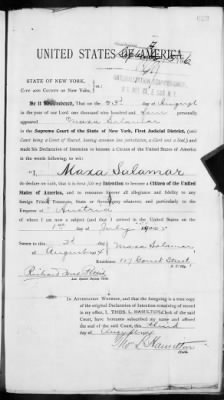 UNITED STATES of AMERICA
STATE OF NEW YORK,
CITY AND COUNTY OF NEW YORK,
Be it Remembered, That on the 3d day of August
in the year of our Lord one thousand nine hundred and personally
appeared Maxa Salamar
in the Supreme Court of the State of New York, First Judicial District,
(said Court being a Court of Record, having common law jurisdiction, a Clerk and a Seal) and
made his Declaration of Intention to become a Citizen of the United States of America
in the words following, to wit:
"I, Maxa Salamar
do declare on oath, that it is bona fide my intention to become a Citizen of the United
States of America, and to renounce forever all allegiance and fidelity to any
foreign Prince, Potentate, State or Sovereignty whatever, and particularly to the
Emperor of Austria
of whom I am now a subject (and that I arrived in the United States on the
1st day of July
Sworn to this 3d Maxa Salamar
day of August
Residence 117 Street
Richard
In Attestation Whereof, and that the foregoing is a true copy
of the original Declaration of Intention remaining of record
in my office, I, THOS. L. HAMILTON, Clerk of the said
Court, have hereunto subscribed my name and affixed
the seal of the said Court, this third
day of August
Thos L Hamilton
Clerk.